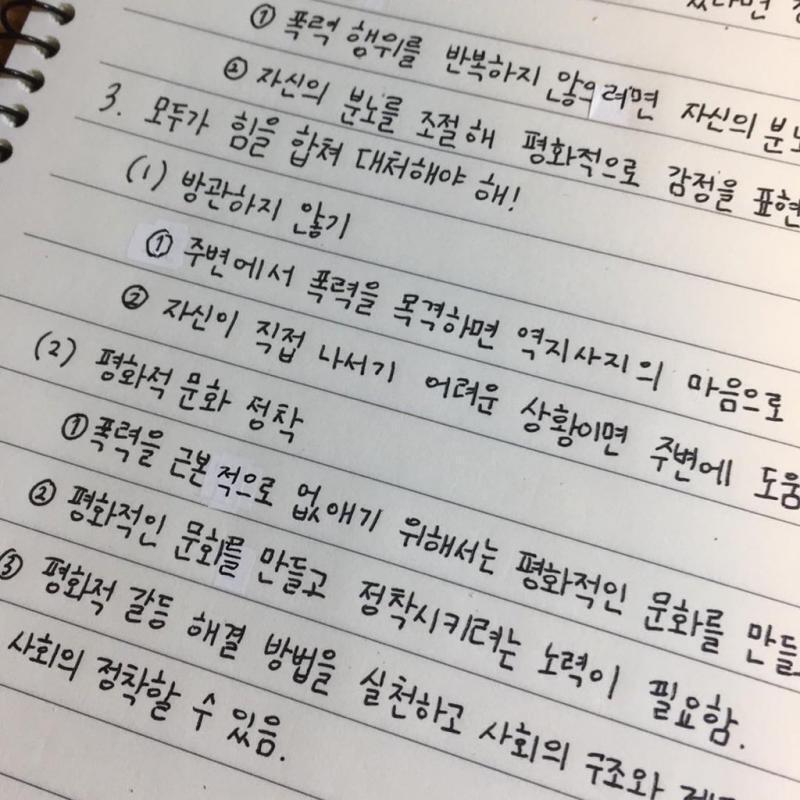 ① 폭력 행위를 반복하지 않으려면 자신의 분노
② 자신의 분노를 조절해 평화적으로 감정을 표현
3. 모두가 힘을 합쳐 대처해야 해!
(1) 방관하지 않기
① 주변에서 폭력을 목격하면 역지사지의 마음으로
② 자신이 직접 나서기 어려운 상황이면 주변에 도움
(2) 평화적 문화 정착
① 폭력을 근본적으로 없애기 위해서는 평화적인 문화를 만들
② 평화적인 문화를 만들고 정착시키려는 노력이 필요함.
③ 평화적 갈등 해결 방법을 실천하고 사회의 구조와
사회의 정착할 수 있음.